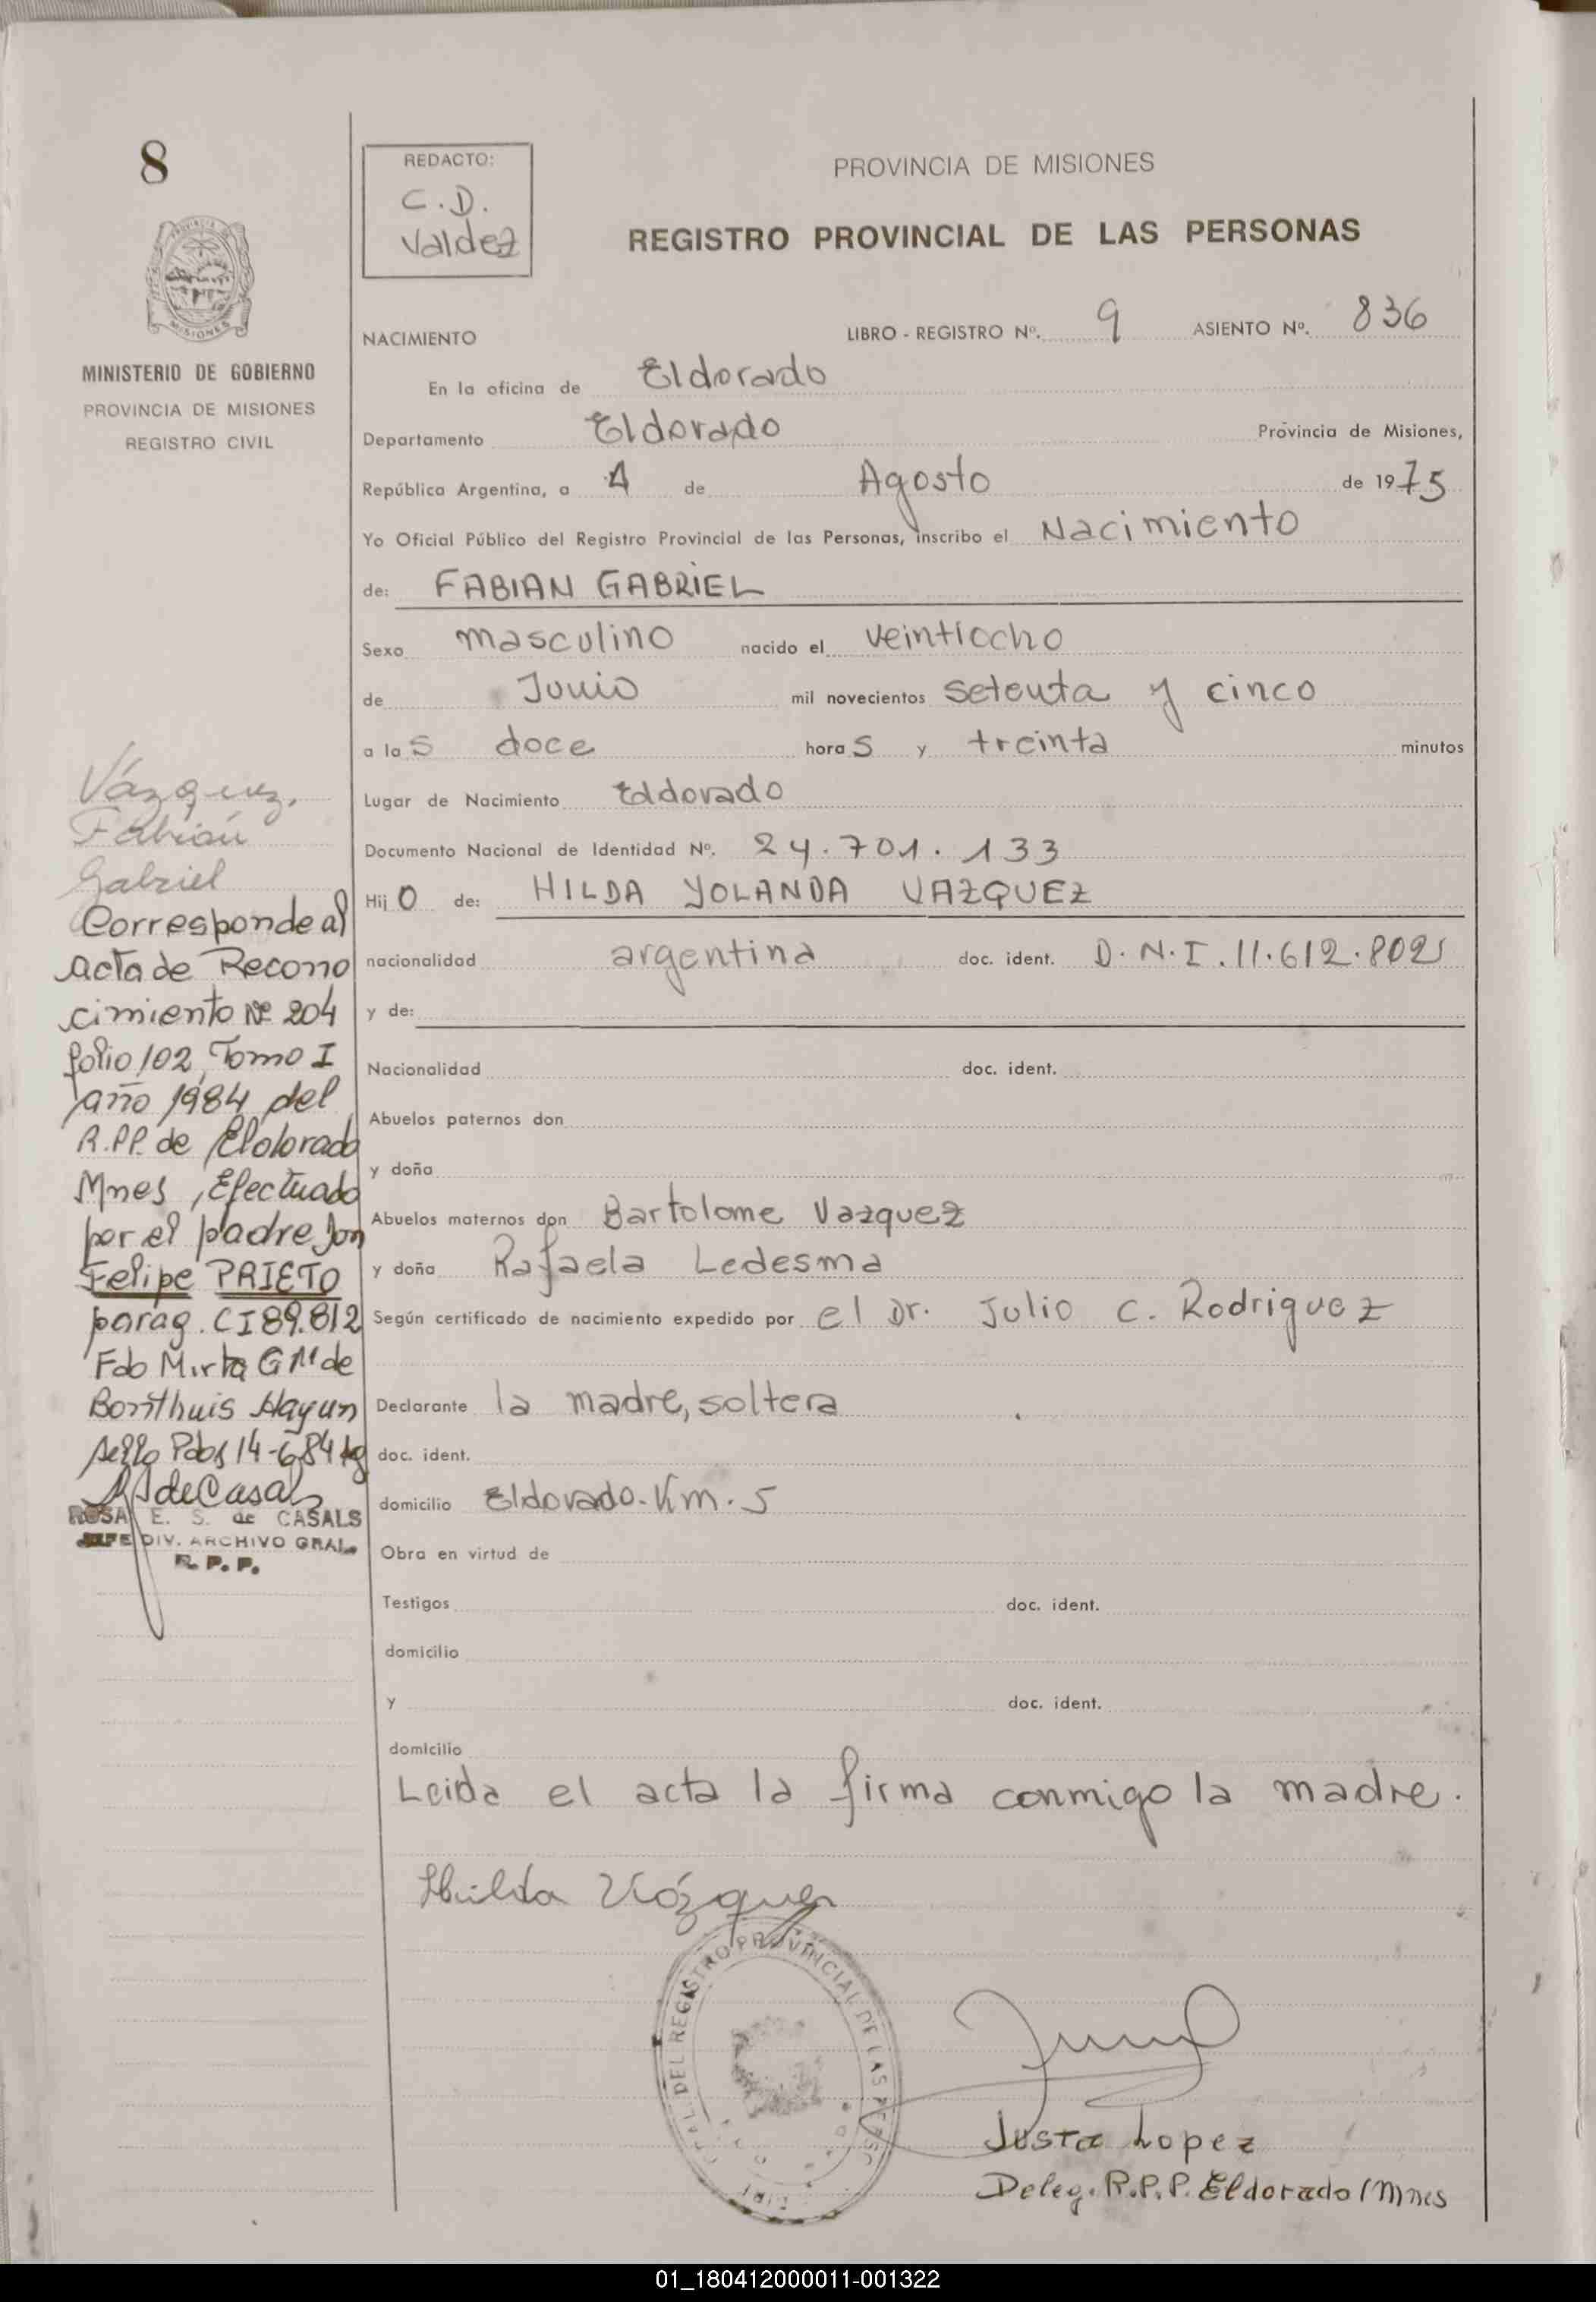 8
REDACTO:
C.D.
Valdez
PROVINCIA DE MISIONES
REGISTRO PROVINCIAL DE LAS PERSONAS
MISIONES
MINISTERIO DE GOBIERNO
PROVINCIA DE MISIONES
REGISTRO CIVIL
NACIMIENTO LIBRO - REGISTRO Nº. 9 ASIENTO Nº. 836
En la oficina de Eldorado
Departamento Eldorado Provincia de Misiones,
República Argentina, a 4 de Agosto de 1975
Yo Oficial Público del Registro Provincial de las Personas, inscribo el Nacimiento
de: FABIAN GABRIEL
Sexo masculino nacido el veintiocho
de Junio mil novecientos setenta y cinco
a las doce horas y treinta minutos
Lugar de Nacimiento Eldorado
Documento Nacional de Identidad Nº. 24.701.133
Hijo de: HILDA YOLANDA VAZQUEZ
nacionalidad argentina doc. ident. D.N.I. 11.612.802
y de:
Nacionalidad doc. ident.
Abuelos paternos don
y doña
Abuelos maternos don Bartolome Vazquez
y doña Rafaela Ledesma
Según certificado de nacimiento expedido por el Dr. Julio C. Rodriguez
Declarante la madre, soltera
doc. ident.
domicilio Eldorado-Km.5
Obra en virtud de
Testigos doc. ident.
domicilio
y doc. ident.
domicilio
Leida el acta la firma conmigo la madre.
Hilda Vázquez
Vázquez,
Fabián
Gabriel
Corresponde al
Acta de Recono
cimiento Nº 204
folio 102, Tomo I
año 1984 del
R.P.P. de Eldorado
Mnes, Efectuado
por el padre Don
Felipe PRIETO
parag. CI 89.812
Fdo Mirta G M de
Bonthuis Hay un
sello Pdas 14-6-84
ROSA E. S. de CASALS
JEFE DIV. ARCHIVO GRAL.
R. P. P.
DEL REGISTRO PROVINCIAL DE LAS PERSO
Justa Lopez
Deleg. R.P.P. Eldorado (Mnes
01_180412000011-001322